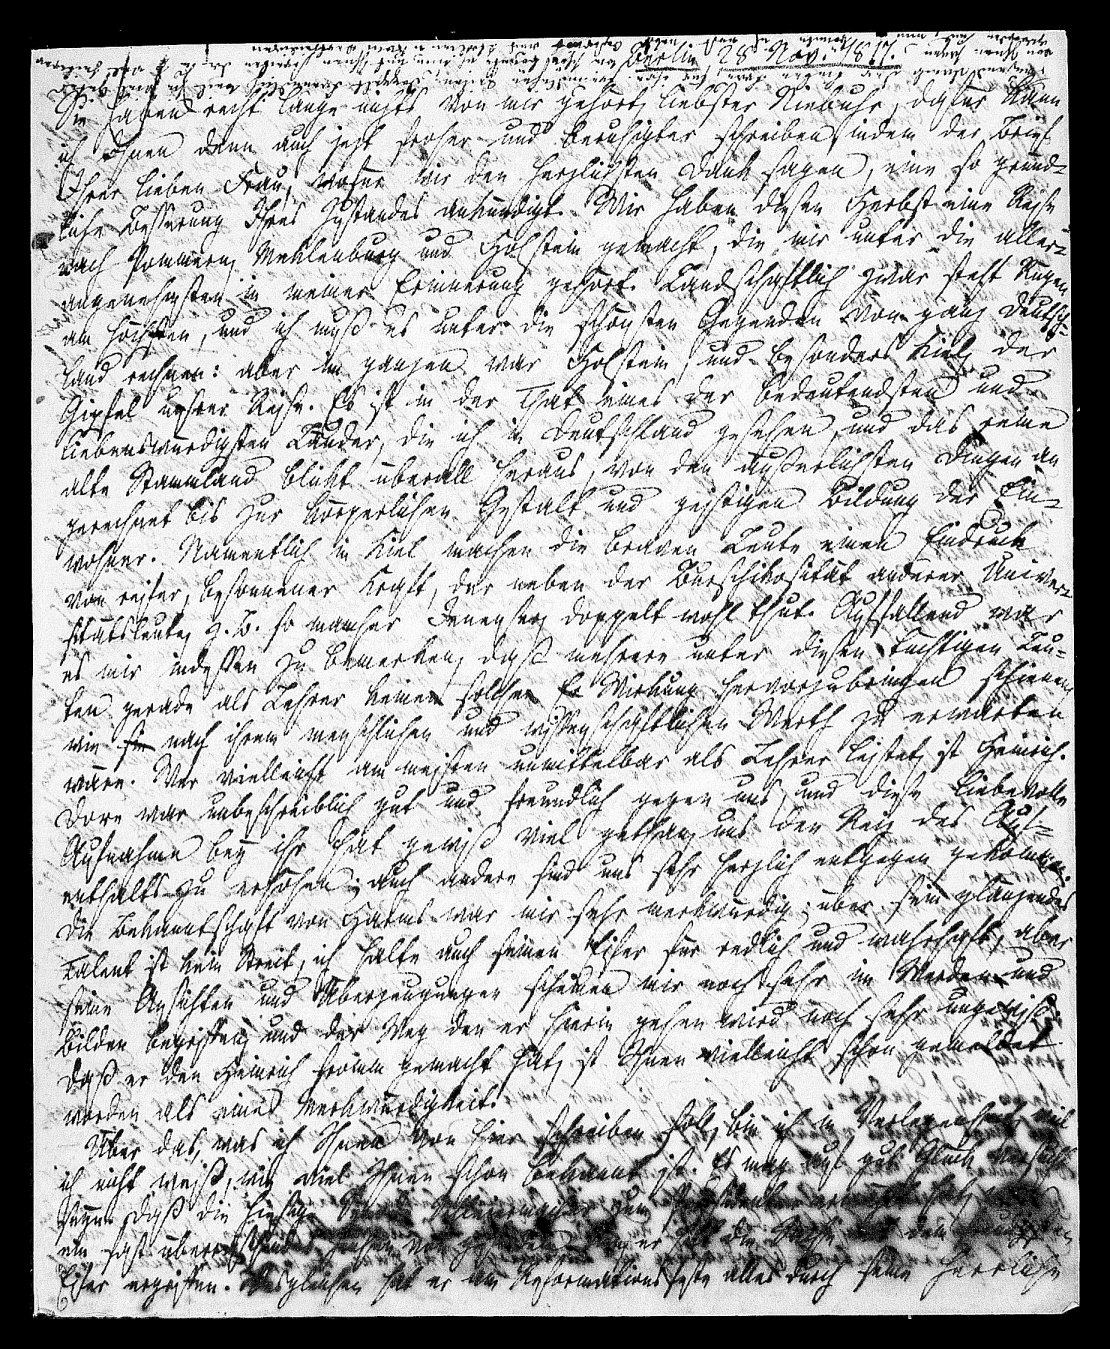 Berlin, 28 Nov. 1817.
Sie haben recht lange nichts von mir gehört, liebster Niebuhr, dafür kann
ich Ihnen denn auch jetzt froher und beruhigter schreiben, indem der Brief
Ihrer lieben Frau, wofür wir den herzlichsten Dank sagen, eine so gründ-
liche Besserung Ihres Zustandes ankündigt. Wir haben diesen Herbst eine Reise
nach Pommern, Meklenburg und Holstein gemacht, die mir unter die aller-
angenehmsten in meiner Erinnerung gehört. Landschaftlich zwar steht Rügen
am höchsten, und ich muß es unter die schönsten Gegenden von ganz Deutsch-
land rechnen: aber im ganzen war Holstein und besonders Kiel der
Gipfel unsrer Reise. Es ist in der That eines der bedeutendsten und
liebenswürdigsten Länder, die ich in Deutschland gesehen, und das reine
alte Stammland blickt überall heraus, von den äußerlichsten Dingen an
gerechnet bis zur körperlichen Gestalt und geistigen Bildung der Ein-
wohner. Namentlich in Kiel machen die braven Leute einen Eindruck
von reifer, besonnener Kraft, der neben der Burschikosität anderer Univer-
sitätsleute, z. B. so mancher Jenenser, doppelt wohl thut. Auffallend war
es mir indessen zu bemerken, daß mehrere unter diesen tüchtigen Leu-
ten gerade als Lehrer keine solche Wirkung hervorzubringen schienen
wie nach ihrem menschlichen und wissenschaftlichen Werth zu erwarten
wäre. Wer vielleicht am meisten unmittelbar als Lehrer leistet, ist Heinrich.
Dore war unbeschreiblich gut und freundlich gegen uns, und diese liebevolle
Aufnahme bey ihr hat gewiß viel gethan, uns den Reiz des Auf-
enthalts zu erhöhen; auch andere sind uns sehr herzlich entgegen gekommen.
Die Bekanntschaft von Harms war mir sehr merkwürdig; über sein glänzendes
Talent ist kein Streit, ich halte auch seinen Eifer für redlich und wahrhaft, aber
seine Ansichten und Überzeugungen scheinen mir noch sehr im Werden und
Bilden begriffen, und der Weg den er hierin gehen wird noch sehr ungewiß.
Daß er den Heinrich fromm gemacht hat, ist Ihnen vielleicht schon gemeldet
worden als eine Merkwürdigkeit.
Über das, was ich Ihnen von hier schreiben soll, bin ich in Verlegenheit, weil
ich nicht weiß, wie viel Ihnen schon bekannt ist. Es mag auf gut Glück
seyn daß die hiesige Schleiermacher zum
ein fast die Sache mit dem
Eifer ergriffen. Desgleichen hat er am Reformationsfeste alles durch seine herrliche